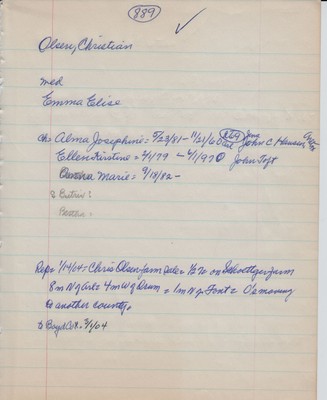 889
Olsen, Christian
med
Emma Elise
ch Alma Josephine = 5/23/81 - 11/21/60 John C Hansen
Ellen Kerstine = 4/1/79 - 4/1/970 John Toft
Marie = 9/18/82 -
Rep = 1/14/04 = Chris Olsen farm sale = 1/2 N on Schoettger farm
8 m N of Arl = 4 m W of Orum = 1 m N of Font = O's moving
to another county.
to Boyd Co. 3/1/04